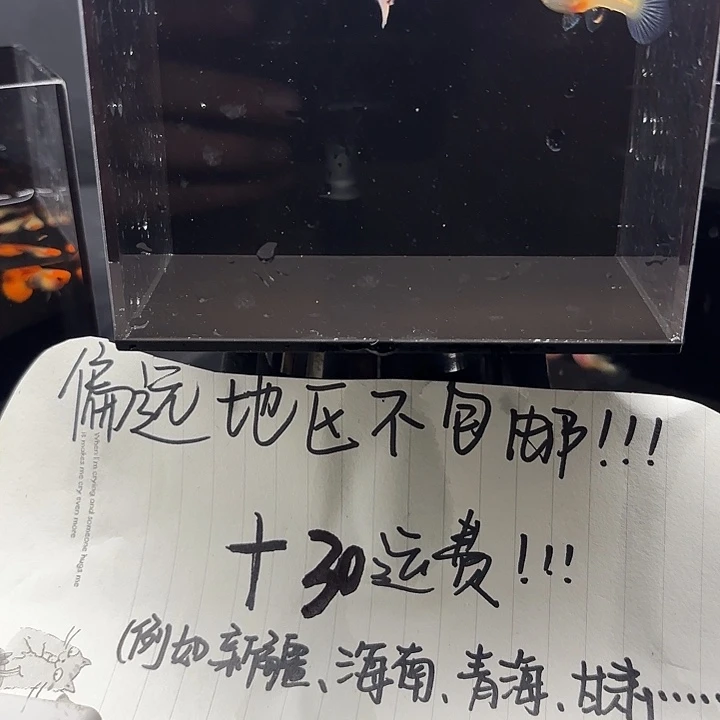 偏远地区不包邮!!!
+30运费!!!
(例如新疆、海南、青海、甘肃……
When I'm crying and someone hugs me
it makes me cry even more